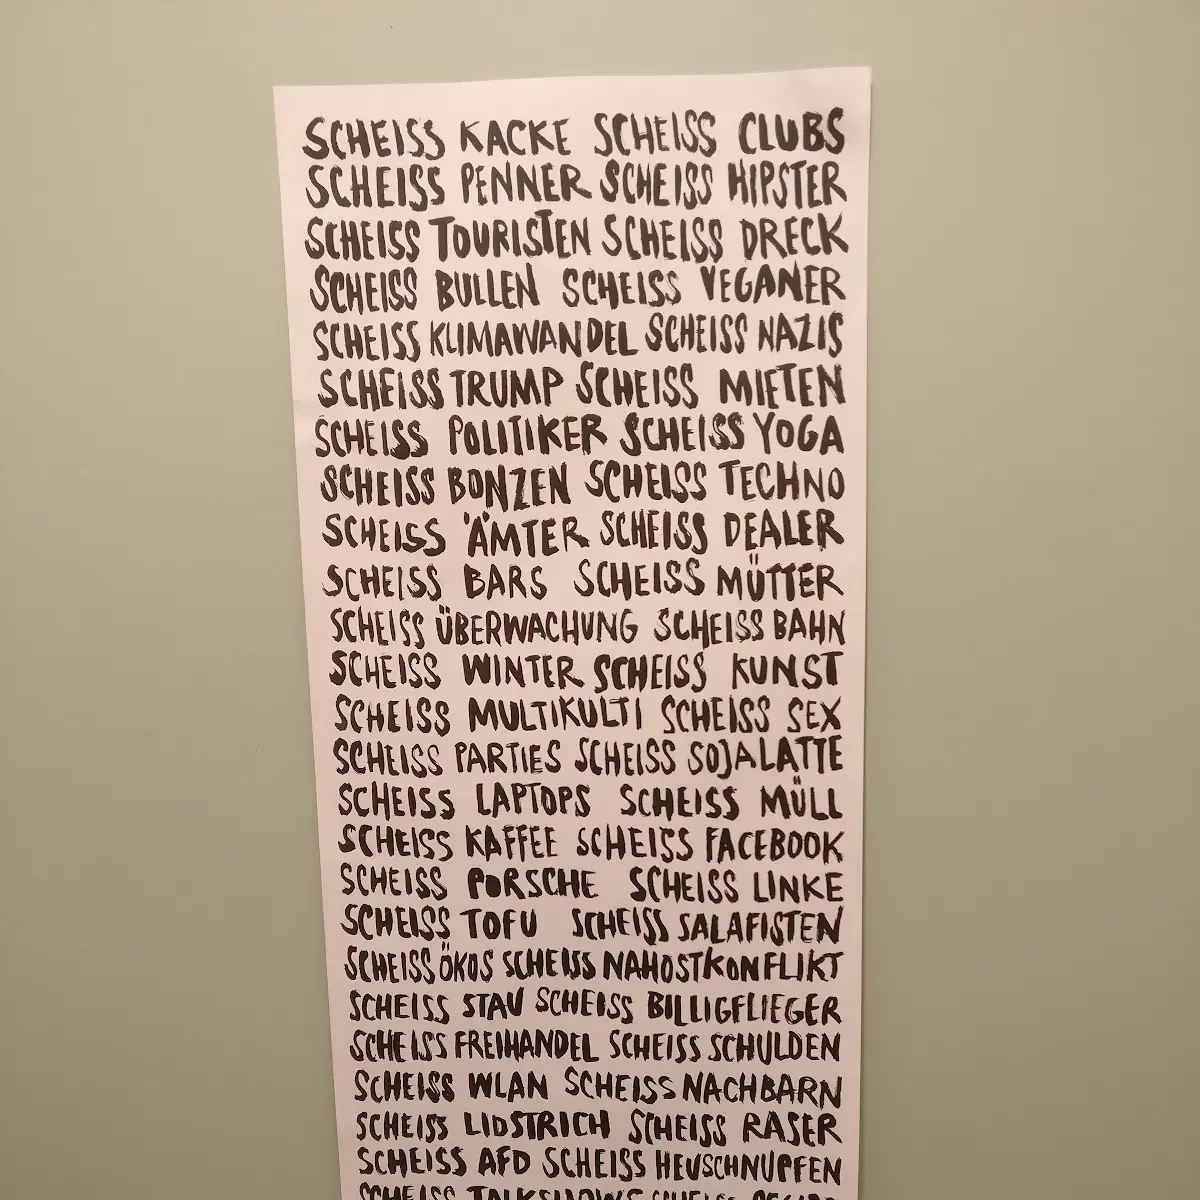 SCHEISS KACKE SCHEISS CLUBS
SCHEISS PENNER SCHEISS HIPSTER
SCHEISS TOURISTEN SCHEISS DRECK
SCHEISS BULLEN SCHEISS VEGANER
SCHEISS KLIMAWANDEL SCHEISS NAZIS
SCHEISS TRUMP SCHEISS MIETEN
SCHEISS POLITIKER SCHEISS YOGA
SCHEISS BONZEN SCHEISS TECHNO
SCHEISS ÄMTER SCHEISS DEALER
SCHEISS BARS SCHEISS MÜTTER
SCHEISS ÜBERWACHUNG SCHEISS BAHN
SCHEISS WINTER SCHEISS KUNST
SCHEISS MULTIKULTI SCHEISS SEX
SCHEISS PARTIES SCHEISS SOJALATTE
SCHEISS LAPTOPS SCHEISS MÜLL
SCHEISS KAFFEE SCHEISS FACEBOOK
SCHEISS PORSCHE SCHEISS LINKE
SCHEISS TOFU SCHEISS SALAFISTEN
SCHEISS ÖKOS SCHEISS NAHOSTKONFLIKT
SCHEISS STAU SCHEISS BILLIGFLIEGER
SCHEISS FREIHANDEL SCHEISS SCHULDEN
SCHEISS WLAN SCHEISS NACHBARN
SCHEISS LIDSTRICH SCHEISS RASER
SCHEISS AFD SCHEISS HEUSCHNUPFEN
SCHEISS TALKSHOWS SCHEISS